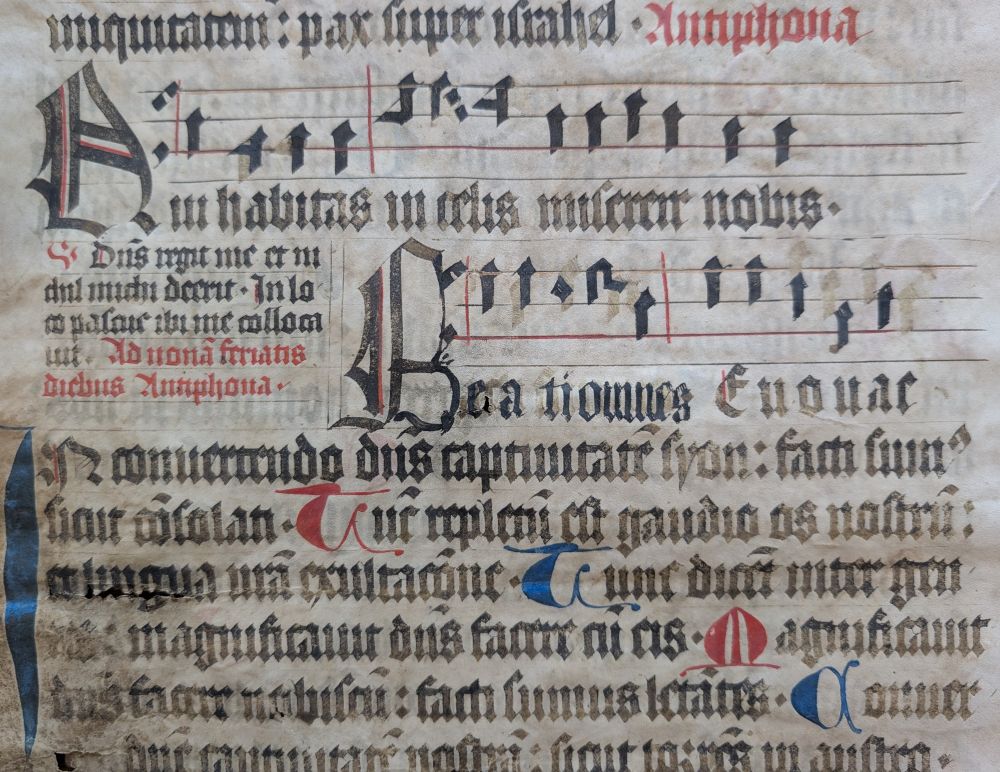 iniquitatem : pax super israhel · Antiphona
Qui habitas in celis miserere nobis ·
V Dn̄s regit me et ni
chil michi deerit · In lo
co pascue ibi me colloca
uit · Ad nonā feriatis
diebus Antiphona ·
Beati omnes Euouae
IN conuertendo dn̄s captiuitatē syon : facti sumꝰ
sicut cōsolati · Tūc repletū est gaudio os nostrū :
et lingua nr̄a exultacōne · Tunc dicēt inter gen
magnificauit dn̄s facere cū eis · Magnificauit
dn̄s facere nobiscū : facti sumus letātes · Conuer
dn̄e captiuitatē nostrā : sicut torrēs in austro ·